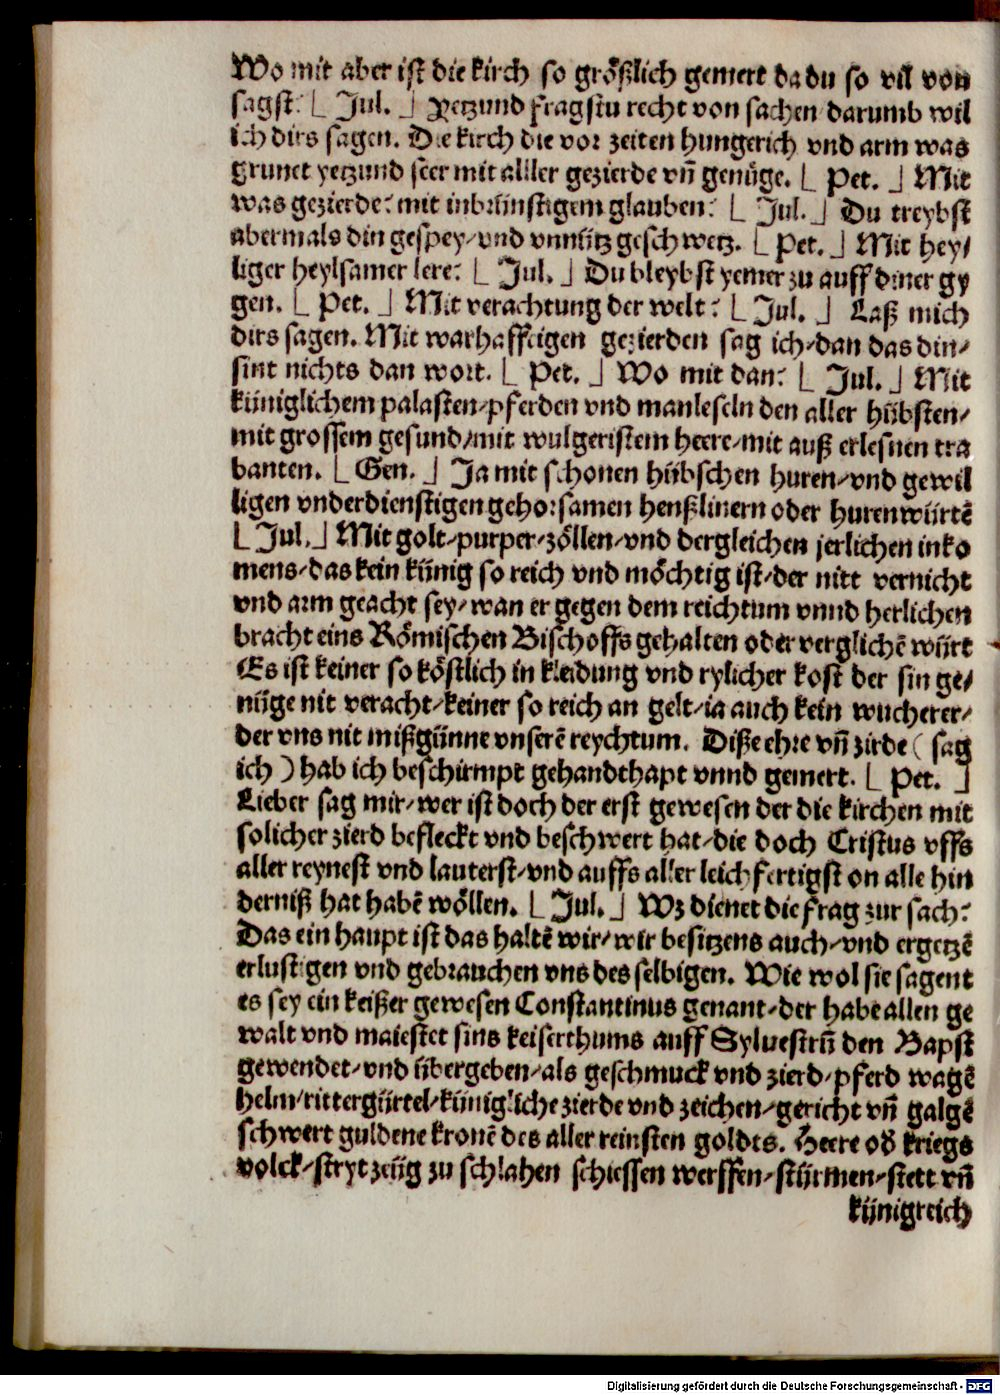 Wo mit aber ist die kirch so größlich gemert da du so vil von
sagst: [ Jul. ] Yetzund fragstu recht von sachen darumb wil
ich dirs sagen. Die kirch die vor zeiten hungerich vnd arm was
grunet yetzund seer mit aller gezierde vñ genüge. [ Pet. ] Mit
was gezierde: mit inbrünstigem glauben: [ Jul. ] Du treybst
abermals din gespey/vnd vnnütz geschwetz. [ Pet. ] Mit hey/
liger heylsamer lere: [ Jul. ] Du bleybst yemer zu auff diner gy
gen. [ Pet. ] Mit verachtung der welt: [ Jul. ] Laß mich
dirs sagen. Mit warhafftigen gezierden sag ich/dan das din/
sint nichts dan wort. [ Pet. ] Wo mit dan: [ Jul. ] Mit
küniglichem palasten/pferden vnd manleseln den aller hübsten/
mit grossem gesund/mit wulgeristem heere/mit auß erlesnen tra
banten. [ Gen. ] Ja mit schonen hübschen huren/vnd gewil
ligen vnderdienstigen gehorsamen henßlinern oder hurenwürtē
[ Jul. ] Mit golt/purper/zöllen/vnd dergleichen jerlichen inko
mens/das kein künig so reich vnd möchtig ist/der nitt vernicht
vnd arm geacht sey/wan er gegen dem reichtum vnnd herlichen
bracht eins Römischen Bischoffs gehalten oder verglichē würt
Es ist keiner so köstlich in kleidung vnd rylicher kost der sin ge/
nüge nit veracht/keiner so reich an gelt/ia auch kein wucherer/
der vns nit mißgünne vnserē reychtum. Diße ehre vñ zirde ( sag
ich ) hab ich beschirmpt gehandthapt vnnd gemert. [ Pet. ]
Lieber sag mir/wer ist doch der erst gewesen der die kirchen mit
solicher zierd befleckt vnd beschwert hat/die doch Cristus vffs
aller reynest vnd lauterst/vnd auffs aller leichfertigst on alle hin
derniß hat habē wöllen. [ Jul. ] Wz dienet die frag zur sach:
Das ein haupt ist das haltē wir/wir besitzens auch/vnd ergetzē
erlustigen vnd gebrauchen vns des selbigen. Wie wol sie sagent
es sey ein keißer gewesen Constantinus genant/der habe allen ge
walt vnd maiestet sins keiserthums auff Syluestrū den Bapst
gewendet/vnd übergeben/als geschmuck vnd zierd/pferd wagē
helm/rittergürtel/künigliche zierde vnd zeichen/gericht vñ galgē
schwert guldene kronē des aller reinsten goldes. Heere od̄ kriegs
volck/stryt zeüg zu schlahen schiessen werffen/stürmen/stett vñ
künigreich
Digitalisierung gefördert durch die Deutsche Forschungsgemeinschaft - DFG